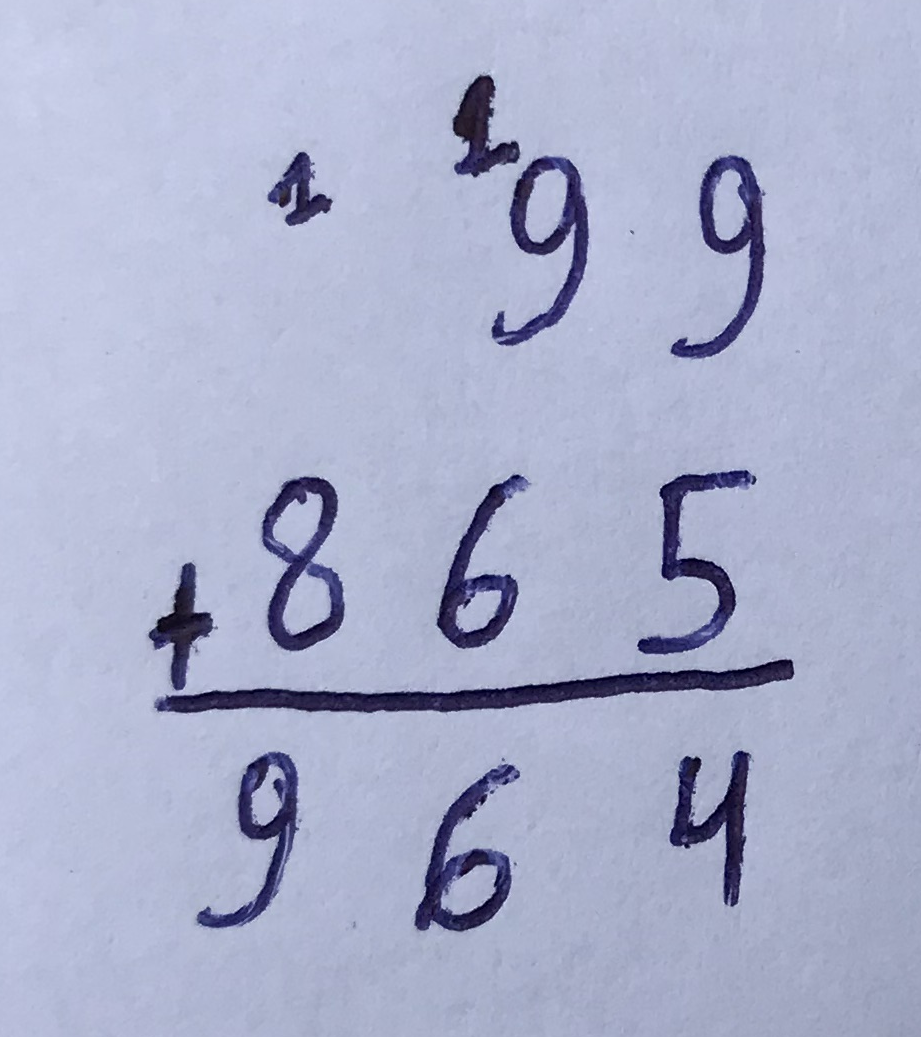 1 1
9 9
+ 8 6 5
9 6 4